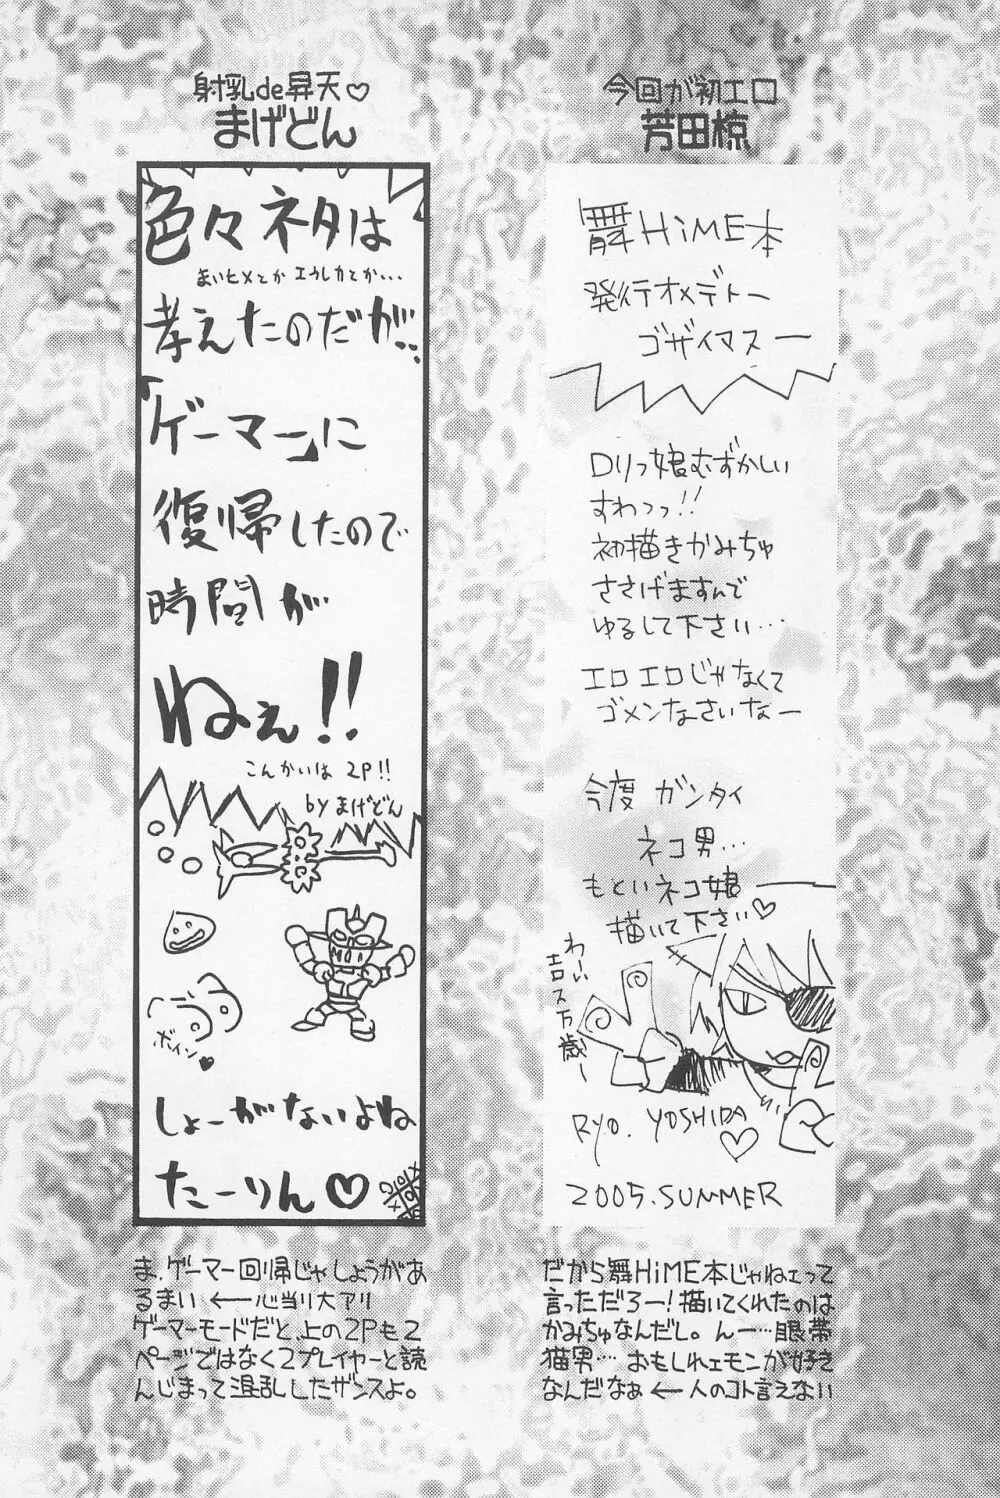 今回が初エロ
芳田椋
舞HiME本
発行オメデトー
ゴザイマスー
ロリっ娘むずかしい
すわっっ!!
初描きかみちゅ
ささげますんで
ゆるして下さい…
エロエロじゃなくて
ゴメンなさいなー
今度 ガンタイ
ネコ男…
もといネコ娘
描いて下さい♡
わーい
吉ス万歳ー
RYO. YOSHIDA
♡
2005.SUMMER
だから舞HiME本じゃねェって
言っただろー!描いてくれたのは
かみちゅなんだし。んー…眼帯
猫男… おもしれェモンが好き
なんだなぁ ← 人のコト言えない
射乳de昇天♡
まげどん
色々ネタは
まいヒメとか エウレカとか...
考えたのだが...
「ゲーマー」に
復帰したので
時間が
ねぇ!!
こんかいは 2P!!
by まげどん
ボイン♥
しょーがないよね
たーりん♡
ま、ゲーマー回帰じゃしょうがあ
るまい ←心当り大アリ
ゲーマーモードだと、上の2Pも2
ページではなく2プレイヤーと読
んじまって混乱したザンスよ。